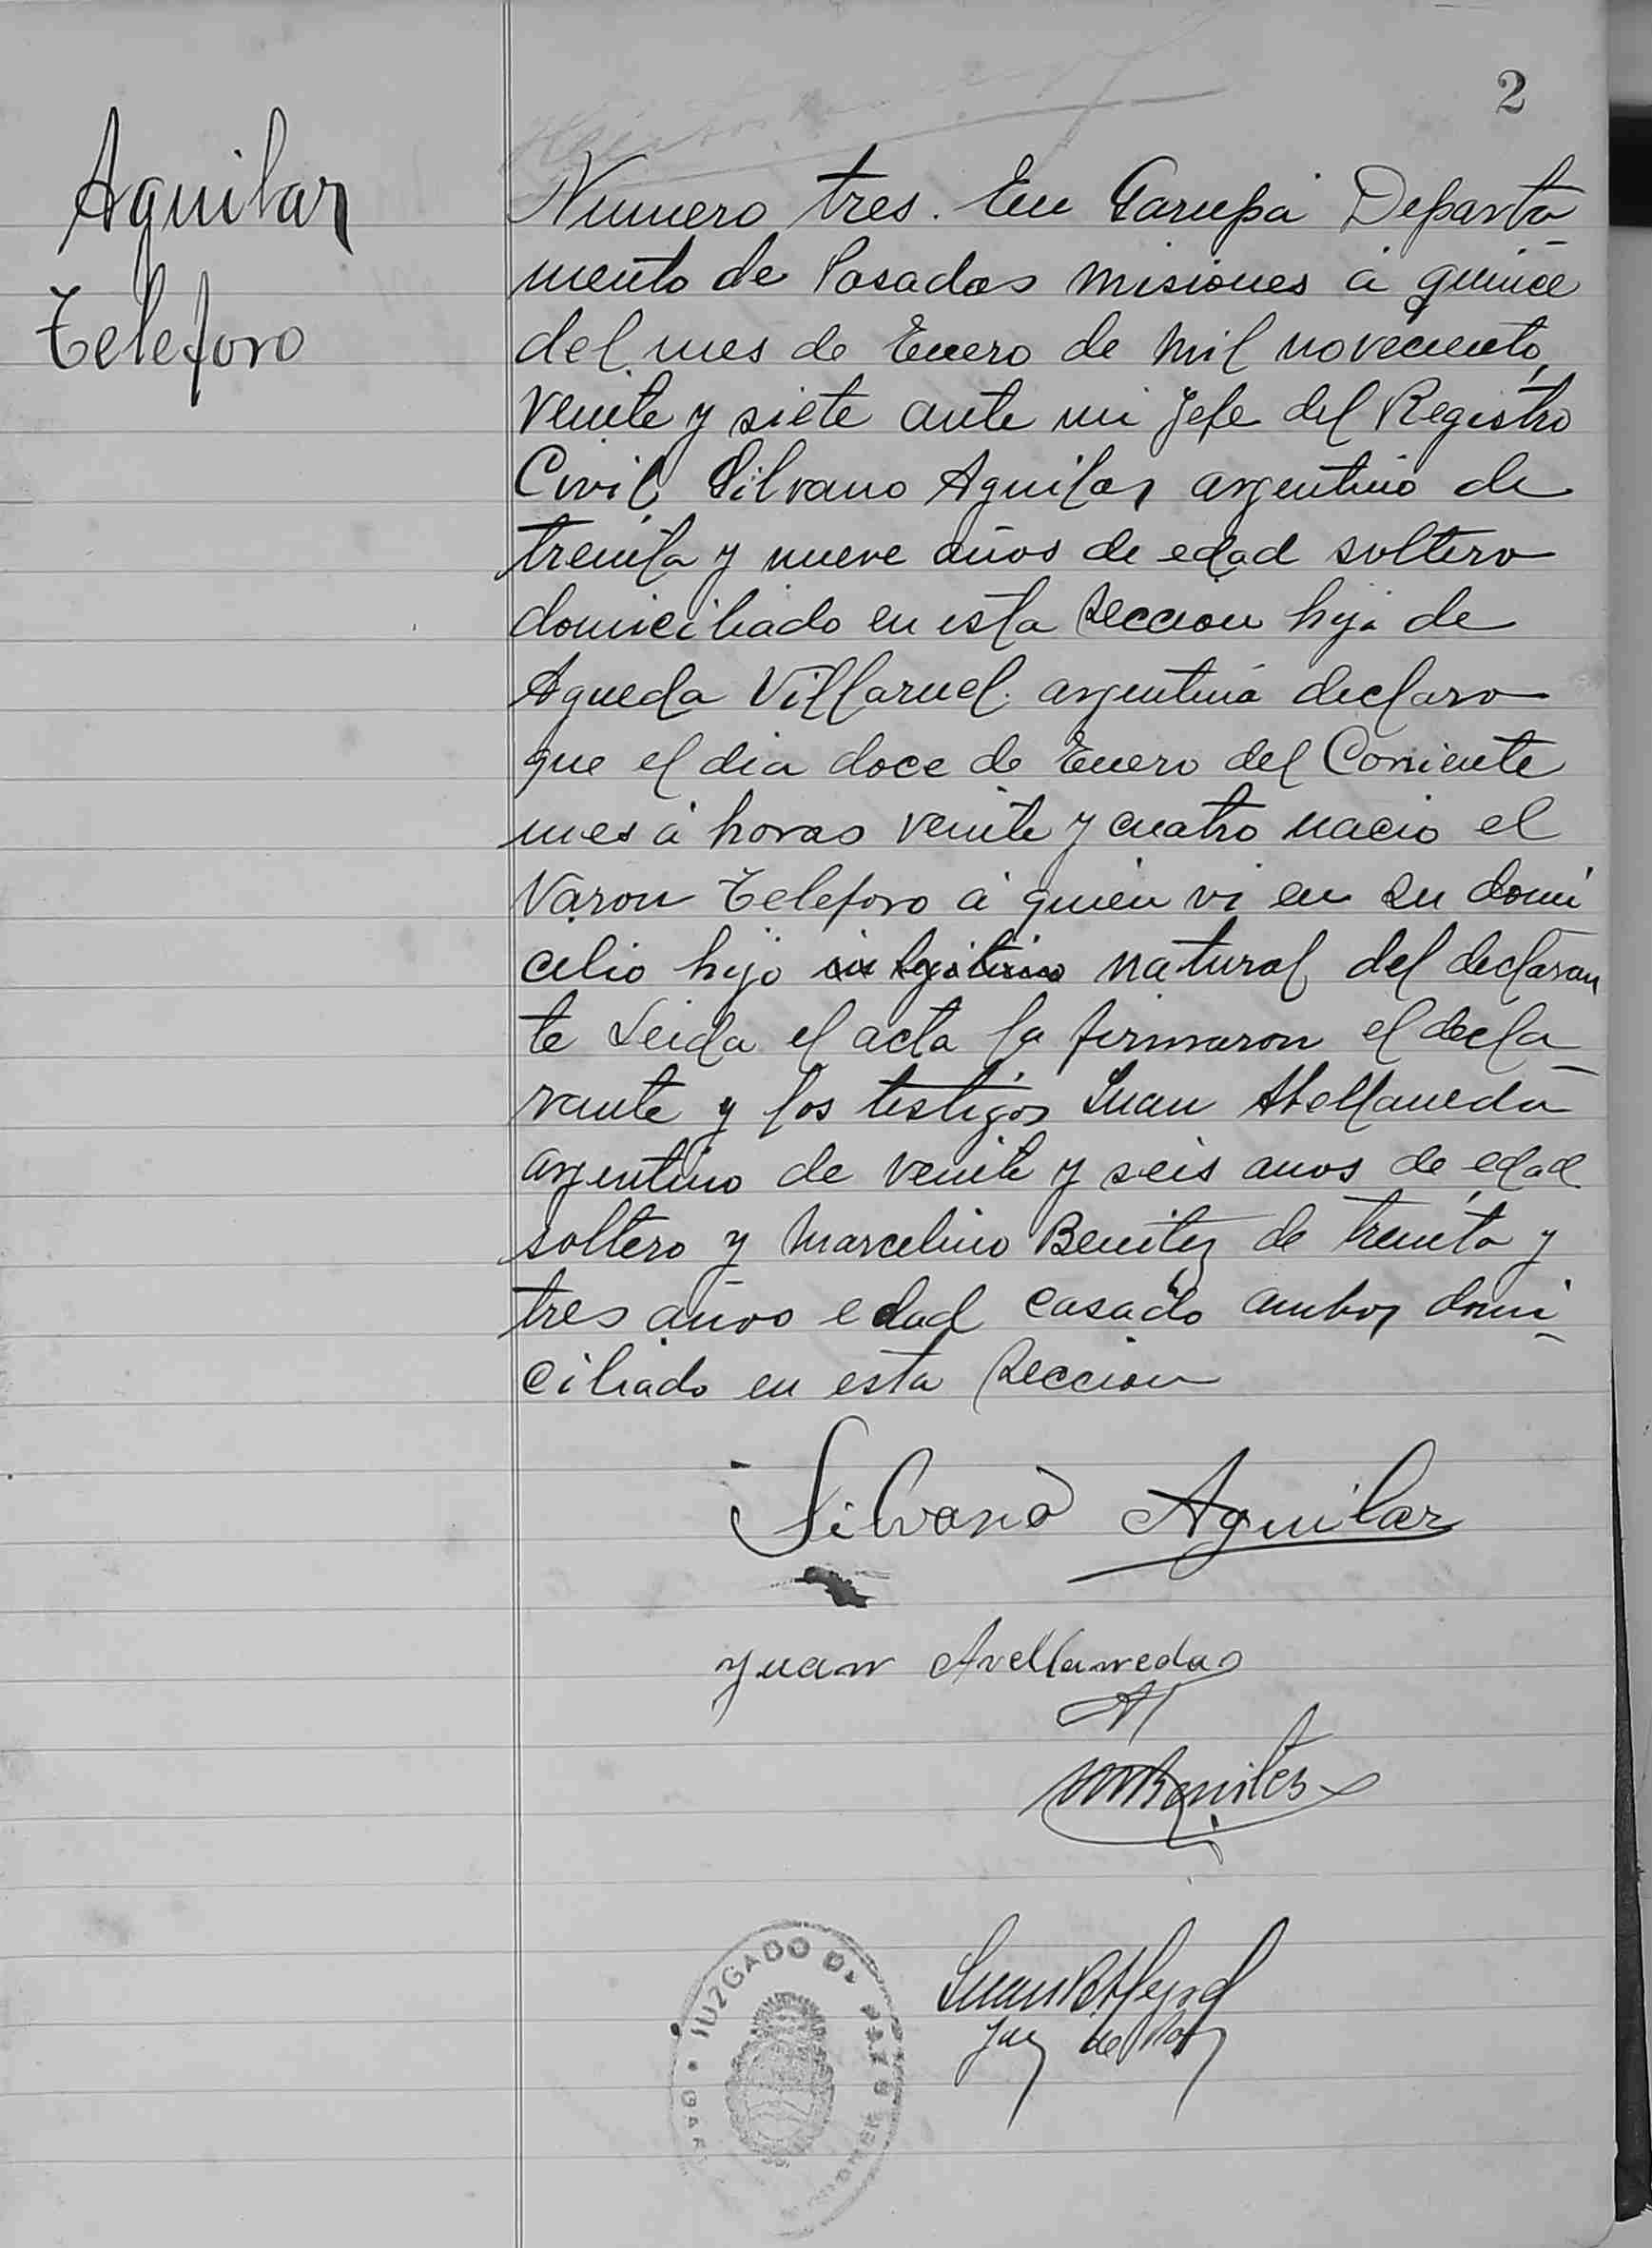 2
Aguilar
Teleforo
Numero tres. En Garupá Departa
mento de Posadas Misiones á quince
del mes de Enero de mil novecento
veinte y siete ante mi Jefe del Registro
Civil, Silvano Aguilar argentino de
treinta y nueve años de edad soltero
domiciliado en esta Seccion hijo de
Agueda Villaruel argentina declaro
que el dia doce de Enero del Corriente
mes á horas veinte y cuatro nacio el
Varon Teleforo á quien vi en su domi
cilio hijo natural del declaran
te Leida el acta la firmaron el decla
rante y los testigos Juan Abellaneda
argentino de veinte y seis anos de edad
soltero y Marcelino Benitez de treinta y
tres años edad casado ambos domi
ciliado en esta Seccion
Silvano Aguilar
Juan Avellaneda
M Benites
Juan
Juez de Paz
JUZGADO DE PAZ
GAR